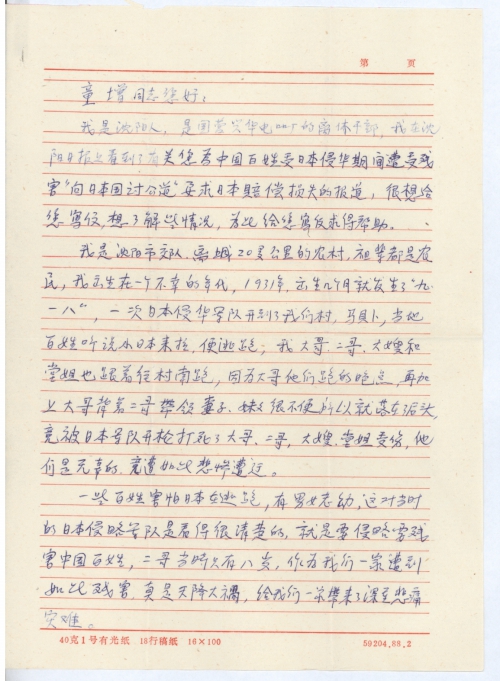 第 页
童增同志您好：
我是沈阳人，是国营 华电 厂的离休干部，我在沈
阳日报上看到了有关您为中国百姓受日本侵华期间遭受残
害"向日本国讨公道"要求日本赔偿损失的报道，很想给
您写信，想了解些情况，为此给您写信求得帮助。
我是沈阳市郊队，离城20多公里的农村，祖辈都是农
民，我出生在一个不幸的年代，1931年，出生几个月就发生了"九
一八"，一次日本侵华军队开到了我们村， ，当地
百姓听说小日本来抢，便逃跑；我大哥、二哥、大嫂和
堂姐也跟着往村南跑，因为大哥他们跑的晚点，再加
上大哥背着二哥带领妻子、妹妹很不便所以就落在后头，
竟被日本军队开枪打死了大哥、二哥，大嫂、堂姐受伤，他
们是无辜的，竟遭如此悲惨遭迂。
一些百姓害怕日本兵逃跑，有男女老幼，这对当时
的日本侵略军队是看得很清楚的，就是要侵略要残
害中国百姓，二哥当时只有八岁，作为我们一家遭到
如此残害，真是天降大祸，给我们一家带来了深重悲痛
灾难。
40克1号有光纸 19行稿纸 16×100 59204.88.2